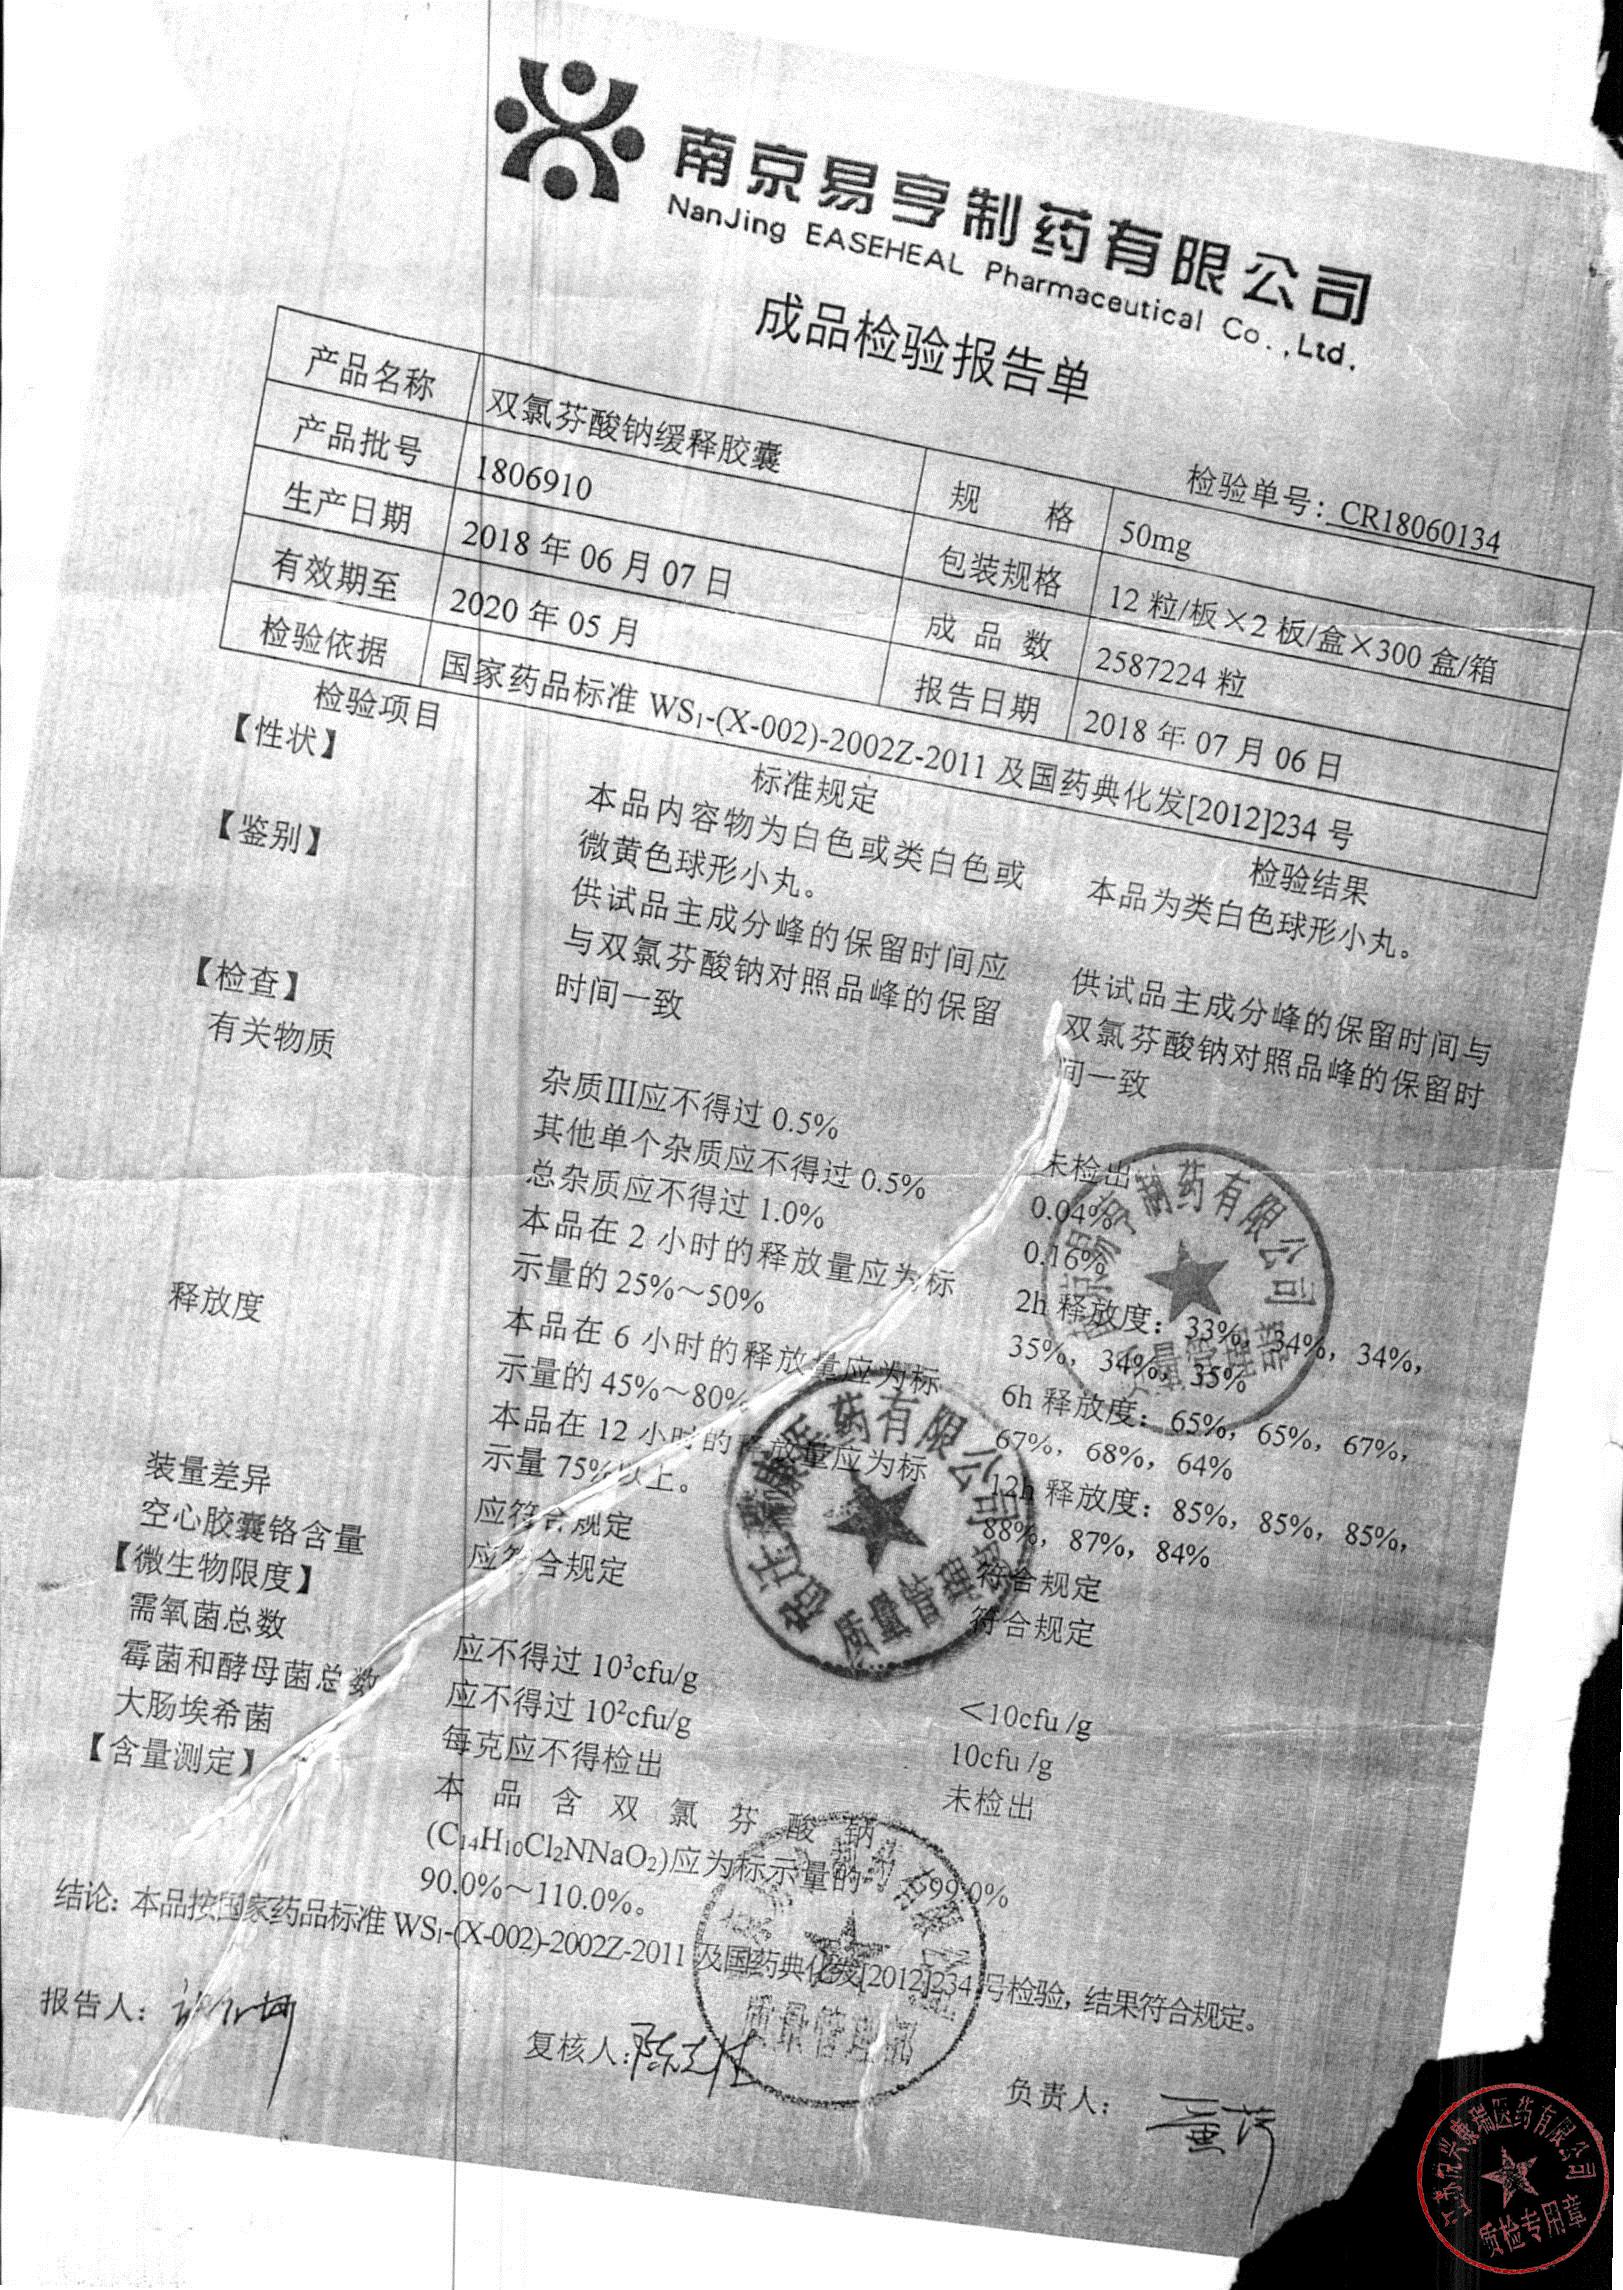 南京易亨制药有限公司
NanJing EASEHEAL Pharmaceutical Co.,Ltd.
成品检验报告单
检验单号：CR18060134
产品名称 双氯芬酸钠缓释胶囊 规 格 50mg
产品批号 1806910 包装规格 12粒/板×2板/盒×300盒/箱
生产日期 2018年06月07日 成品数 2587224粒
有效期至 2020年05月 报告日期 2018年07月06日
检验依据 国家药品标准 WS₁-(X-002)-2002Z-2011及国药典化发[2012]234号
检验项目 标准规定 检验结果
【性状】 本品内容物为白色或类白色或 本品为类白色球形小丸。
微黄色球形小丸。
【鉴别】 供试品主成分峰的保留时间应 供试品主成分峰的保留时间与
与双氯芬酸钠对照品峰的保留 双氯芬酸钠对照品峰的保留时
时间一致 间一致
【检查】
有关物质 杂质III应不得过0.5% 未检出
其他单个杂质应不得过0.5% 0.04%
总杂质应不得过1.0% 0.16%
释放度 本品在2小时的释放量应为标 2h释放度：33%，34%，34%，
示量的25%～50% 35%，34%，35%
本品在6小时的释放量应为标 6h释放度：65%，65%，67%，
示量的45%～80% 67%，68%，64%
本品在12小时的释放量应为标 12h释放度：85%，85%，85%，
示量75%以上。 88%，87%，84%
装量差异 应符合规定 符合规定
空心胶囊铬含量 应符合规定 符合规定
【微生物限度】
需氧菌总数 应不得过10³cfu/g ＜10cfu/g
霉菌和酵母菌总数 应不得过10²cfu/g 10cfu/g
大肠埃希菌 每克应不得检出 未检出
【含量测定】 本品含双氯芬酸钠
(C₁₄H₁₀Cl₂NNaO₂)应为标示量的 99.0%
90.0%～110.0%。
结论：本品按国家药品标准WS₁-(X-002)-2002Z-2011及国药典化发[2012]234号检验，结果符合规定。
报告人：
复核人：
负责人：
制药有限公司
质量管理部
药有限公司
质量管理部
质量管理部
康瑞医药有限公司
质检专用章